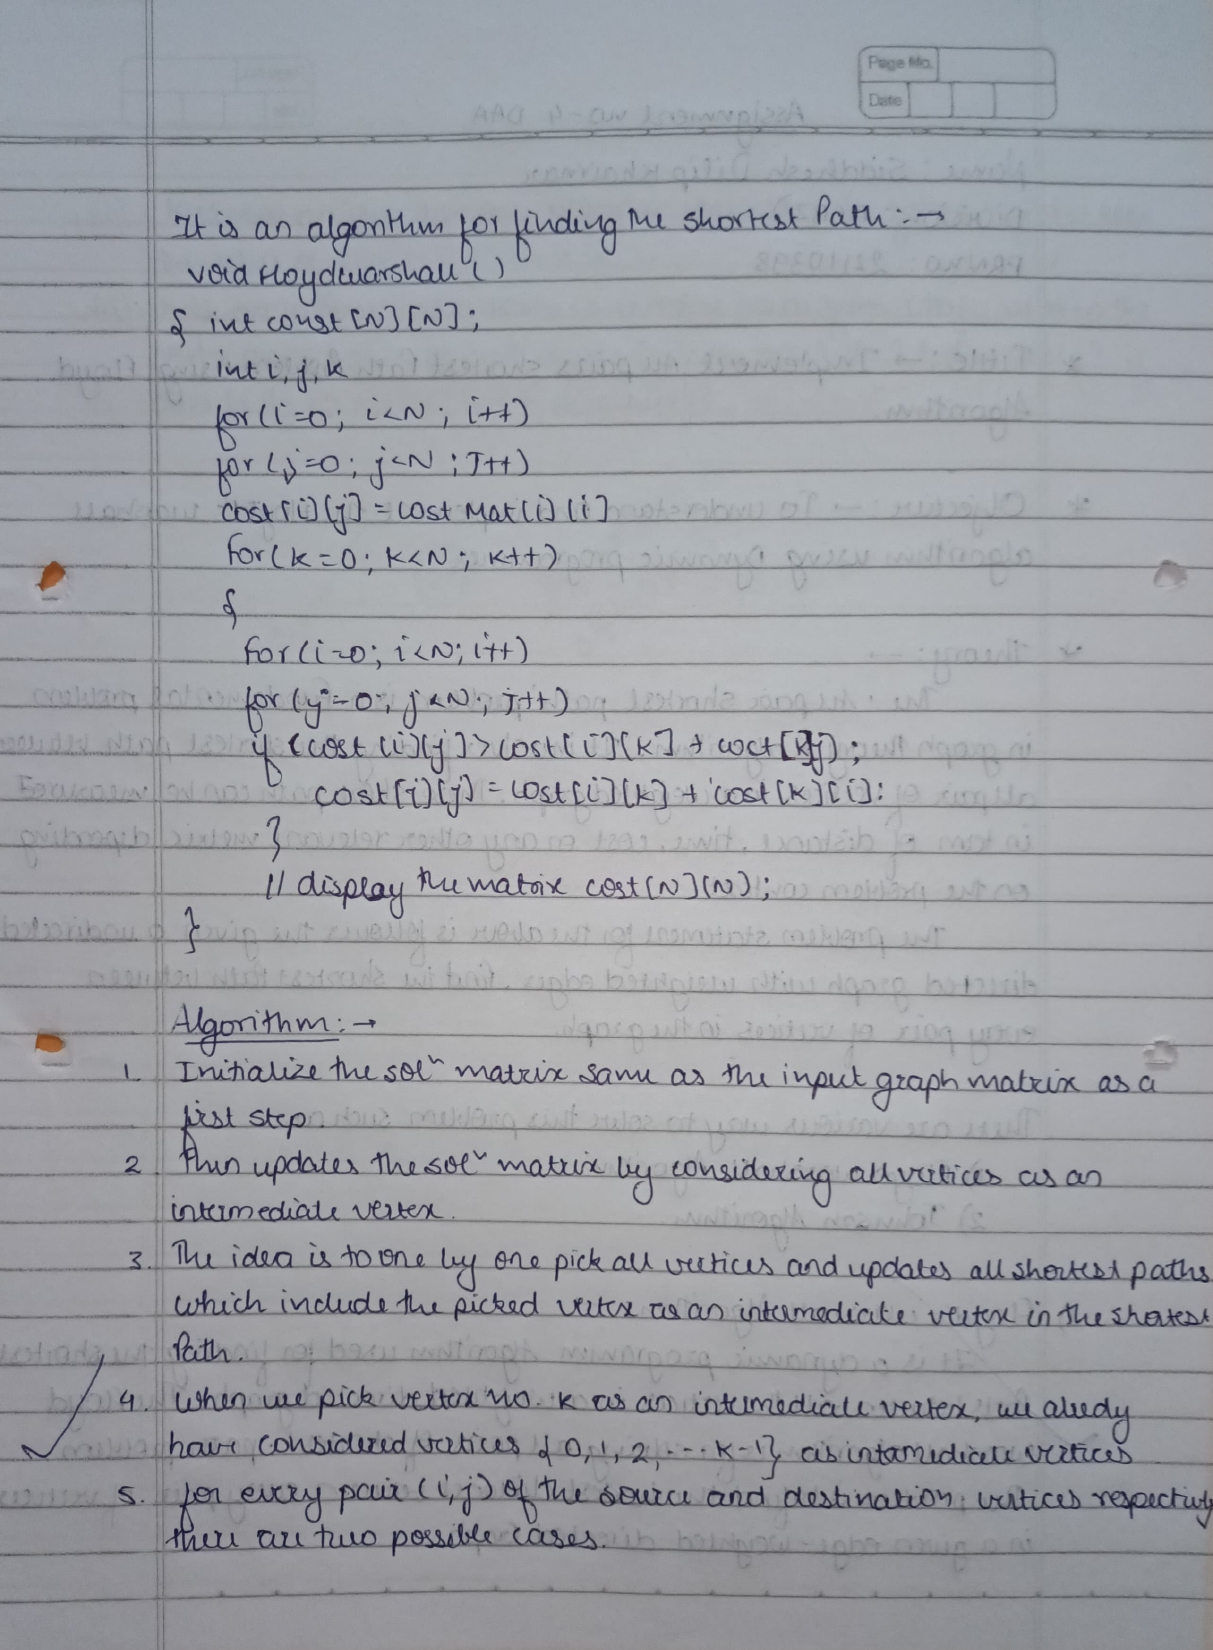 Page No.
Date
It is an algorithm for finding the shortest Path :→
void Floydwarshall ()
{ int const [N] [N];
int i, j, k
for (i=0; i<N; i++)
for (j=0; j<N; J++)
cost [i] [j] = cost Mat [i] [i]
For (k=0; K<N; K++)
{
For (i=0; i<N; i++)
for (j=0; j<N; j++)
if (cost [i] [j] > cost [i] [K] + coct [k]j];
cost [i] [j] = cost [i] [k] + cost [k] [i]:
}
// display the matrix cost [N] [N];
}
Algorithm :→
1. Initialize the solⁿ matrix same as the input graph matrix as a
first step.
2. then updates the solⁿ matrix by considering all vertices as an
intermediate vertex.
3. The idea is to one by one pick all vertices and updates all shortest paths
which include the picked vertex as an intermediate vertex in the shortest
Path.
4. When we pick vertex no. K as an intermediate vertex, we aleedy
have considered vertices {0, 1, 2, ... K-1} as intamediate vertices
5. for every pair (i, j) of the source and destination vertices respectively
there are two possible cases.